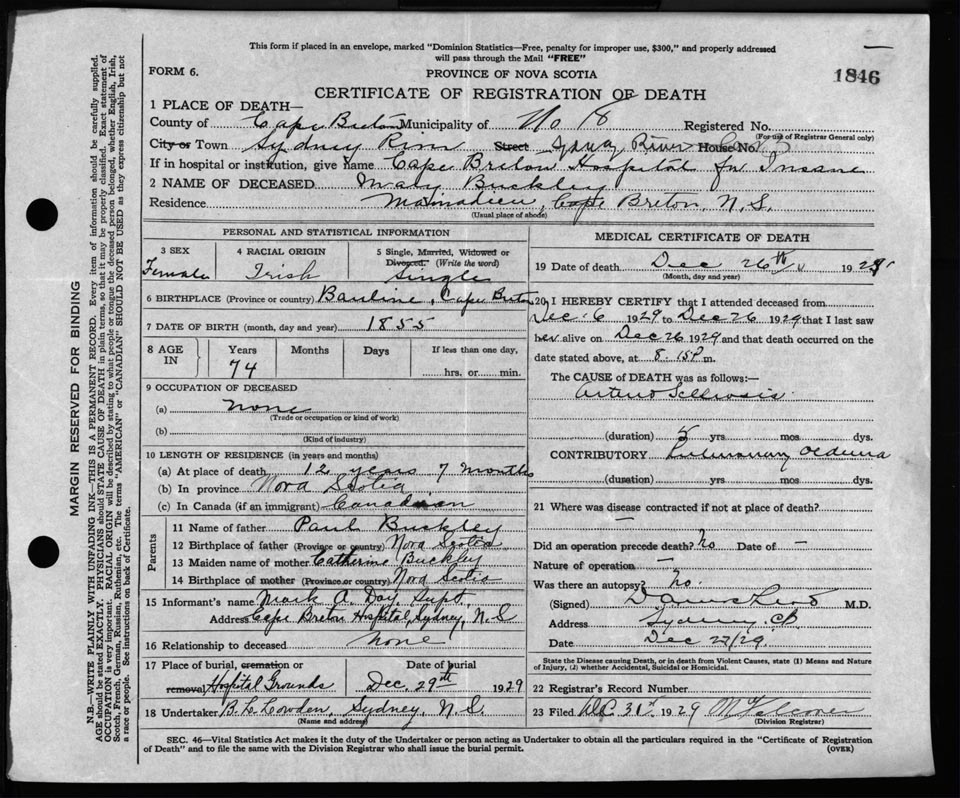 This form if placed in an envelope, marked "Dominion Statistics—Free, penalty for improper use, $300," and properly addressed
will pass through the Mail "FREE"
FORM 6.
PROVINCE OF NOVA SCOTIA
1846
CERTIFICATE OF REGISTRATION OF DEATH
1 PLACE OF DEATH—
County of Cape Breton Municipality of No 8 Registered No.
(For use of Registrar General only)
City or Town Sydney River Street River House No.
If in hospital or institution, give name Cape Breton Hospital for Insane
2 NAME OF DECEASED Mary Buckley
Residence Cape Breton, N.S.
(Usual place of abode)
PERSONAL AND STATISTICAL INFORMATION
3 SEX Female
4 RACIAL ORIGIN Irish
5 Single, Married, Widowed or Divorced. (Write the word) Single
6 BIRTHPLACE (Province or country) Cape Breton
7 DATE OF BIRTH (month, day and year) 1855
8 AGE IN Years Months Days If less than one day,
74 hrs. or min.
9 OCCUPATION OF DECEASED
(a) none
(Trade or occupation or kind of work)
(b)
(Kind of industry)
10 LENGTH OF RESIDENCE (in years and months)
(a) At place of death 12 years 7 months
(b) In province Nova Scotia
(c) In Canada (if an immigrant) Canadian
Parents
11 Name of father Paul Buckley
12 Birthplace of father (Province or country) Nova Scotia
13 Maiden name of mother Catherine Buckley
14 Birthplace of mother (Province or country) Nova Scotia
15 Informant's name Mark A Day Supt.
Address Cape Breton Hospital, Sydney, N.S
16 Relationship to deceased None
17 Place of burial, cremation or removal Hospital Grounds
Date of burial Dec. 29th 1929
18 Undertaker B. L. Lowden, Sydney, N.S.
(Name and address)
MEDICAL CERTIFICATE OF DEATH
19 Date of death Dec 26th 1929
(Month, day and year)
20 I HEREBY CERTIFY that I attended deceased from
Dec 6 1929 to Dec 26 1929 that I last saw
her alive on Dec 26 1929 and that death occurred on the
date stated above, at 8.15 P m.
The CAUSE of DEATH was as follows:—
Arterio Sclerosis
(duration) 5 yrs. mos dys.
CONTRIBUTORY Pulmonary oedema
(duration) yrs. mos. dys.
21 Where was disease contracted if not at place of death?
—
Did an operation precede death? No Date of —
Nature of operation —
Was there an autopsy? No.
(Signed) M.D.
Address Sydney CB
Date Dec 27/29.
State the Disease causing Death, or in death from Violent Causes, state (1) Means and Nature
of Injury, (2) whether Accidental, Suicidal or Homicidal.
22 Registrar's Record Number
23 Filed Dec 31st 1929
(Division Registrar)
SEC. 46—Vital Statistics Act makes it the duty of the Undertaker or person acting as Undertaker to obtain all the particulars required in the "Certificate of Registration
of Death" and to file the same with the Division Registrar who shall issue the burial permit.
(OVER)
MARGIN RESERVED FOR BINDING
N.B.—WRITE PLAINLY WITH UNFADING INK—THIS IS A PERMANENT RECORD. Every item of information should be carefully supplied.
AGE should be stated EXACTLY. PHYSICIANS should STATE CAUSE OF DEATH in plain terms, so that it may be properly classified. Exact statement of
OCCUPATION is very important. RACIAL ORIGIN will be described by stating to what people or tongue the deceased person belonged, whether English, Irish,
Scotch, French, German, Russian, Ruthenian, etc. The terms "AMERICAN" or "CANADIAN" SHOULD NOT BE USED as they express citizenship but not
a race or people. See instructions on back of Certificate.